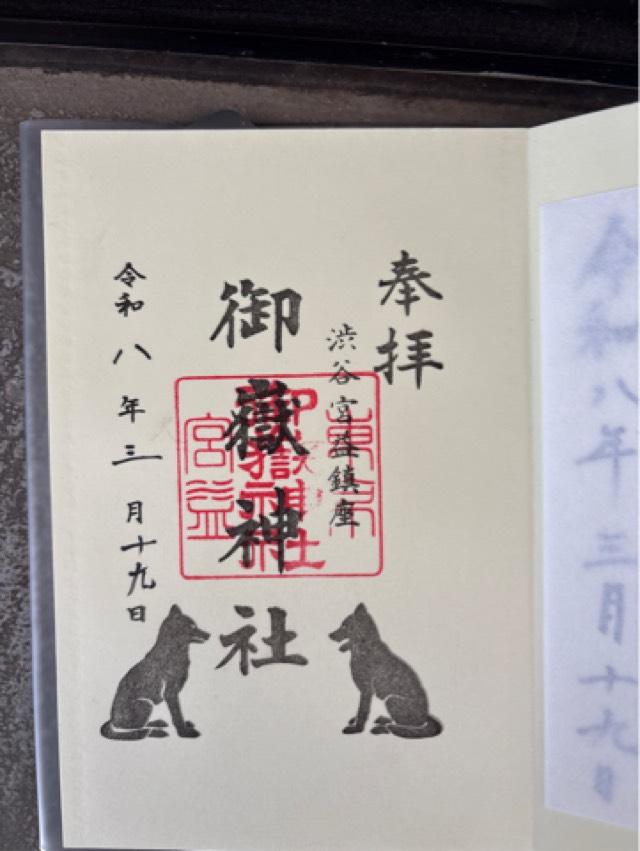 奉拝
渋谷宮益鎮座
御嶽神社
令和八年三月十九日
東京
御嶽神社
宮益
令和八年三月十九日